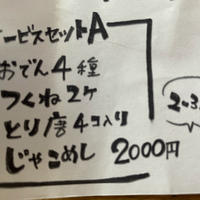 ービスセットA
おでん4種
つくね2ケ
とり唐4コ入り
じゃこめし 2000円
2~3